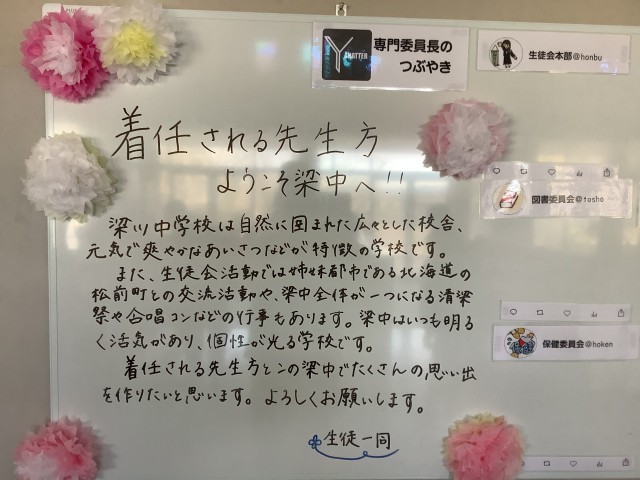 専門委員長の
つぶやき
生徒会本部@honbu
着任される先生方
ようこそ梁中へ!!
図書委員会@tosho
梁川中学校は自然に囲まれた広々とした校舎、
元気で爽やかなあいさつなどが特徴の学校です。
また、生徒会活動では姉妹都市である北海道の
松前町との交流活動や、梁中全体が一つになる清梁
祭や合唱コンなどの行事もあります。梁中はいつも明る
く活気があり、個性が光る学校です。
保健委員会@hoken
着任される先生方とこの梁中でたくさんの思い出
を作りたいと思います。よろしくお願いします。
生徒一同